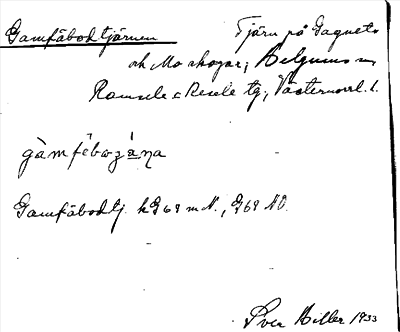 Gamfäbodtjärnen Tjärn på Gagnets
och Mo skogar; Helgums sn
Ramsele o Resele tg, Västernorrl. l.
gàmfèbωzána
Gamfäbodtj. kG 69 m N., G 69 NO.
Sven Hiller 1933